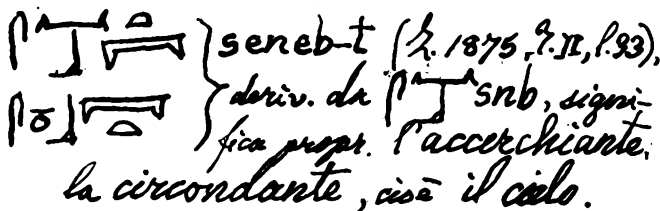 seneb-t (Z. 1875, T. II, p. 93),
deriv. da snb, signi-
fica propr. l'accerchiante,
la circondante, cioè il cielo.